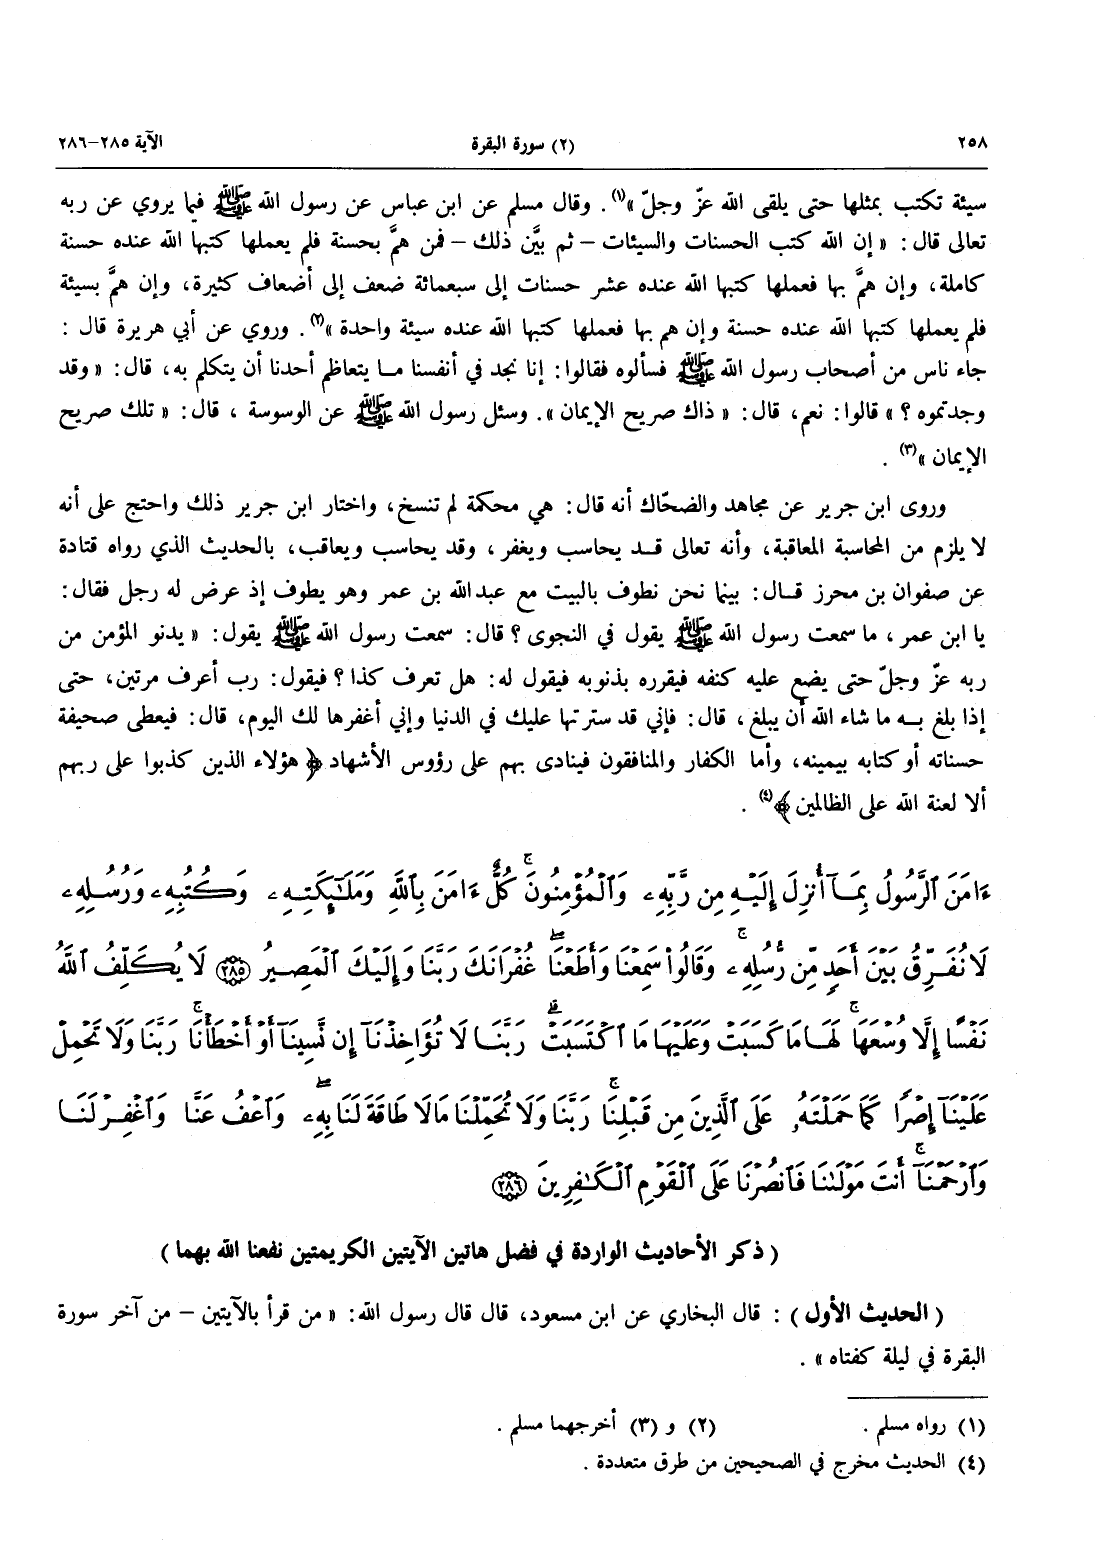 ٢٥٨ (٢) سورة البقرة الآية ٢٨٥-٢٨٦
سيئة تكتب بمثلها حتى يلقى الله عزّ وجلّ »(١). وقال مسلم عن ابن عباس عن رسول الله ﷺ فيما يروي عن ربه
تعالى قال : « إن الله كتب الحسنات والسيئات – ثم بيَّن ذلك – فمن همَّ بحسنة فلم يعملها كتبها الله عنده حسنة
كاملة، وإن همَّ بها فعملها كتبها الله عنده عشر حسنات إلى سبعمائة ضعف إلى أضعاف كثيرة، وإن همَّ بسيئة
فلم يعملها كتبها الله عنده حسنة وإن هم بها فعملها كتبها الله عنده سيئة واحدة »(٢). وروي عن أبي هريرة قال :
جاء ناس من أصحاب رسول الله ﷺ فسألوه فقالوا: إنا نجد في أنفسنا مـا يتعاظم أحدنا أن يتكلم به، قال: « وقد
وجدتموه ؟ » قالوا: نعم، قال: « ذاك صريح الإيمان ». وسئل رسول الله ﷺ عن الوسوسة ، قال: « تلك صريح
الإيمان »(٣) .
وروى ابن جرير عن مجاهد والضحّاك أنه قال: هي محكمة لم تنسخ، واختار ابن جرير ذلك واحتج على أنه
لا يلزم من المحاسبة المعاقبة، وأنه تعالى قـد يحاسب ويغفر ، وقد يحاسب ويعاقب، بالحديث الذي رواه قتادة
عن صفوان بن محرز قـال: بينما نحن نطوف بالبيت مع عبد الله بن عمر وهو يطوف إذ عرض له رجل فقال:
يا ابن عمر ، ما سمعت رسول الله ﷺ يقول في النجوى ؟ قال: سمعت رسول الله ﷺ يقول: « يدنو المؤمن من
ربه عزّ وجلّ حتى يضع عليه كنفه فيقرره بذنوبه فيقول له: هل تعرف كذا ؟ فيقول: رب أعرف مرتين، حتى
إذا بلغ بـه ما شاء الله أن يبلغ ، قال: فإني قد سترتها عليك في الدنيا وإني أغفرها لك اليوم، قال: فيعطى صحيفة
حسناته أو كتابه بيمينه، وأما الكفار والمنافقون فينادى بهم على رؤوس الأشهاد ﴿ هؤلاء الذين كذبوا على ربهم
ألا لعنة الله على الظالمين ﴾(٤) .
ءَامَنَ ٱلرَّسُولُ بِمَآ أُنزِلَ إِلَيْهِ مِن رَّبِّهِۦ وَٱلْمُؤْمِنُونَۚ كُلٌّ ءَامَنَ بِٱللَّهِ وَمَلَٰٓئِكَتِهِۦ وَكُتُبِهِۦ وَرُسُلِهِۦ
لَا نُفَرِّقُ بَيْنَ أَحَدٍ مِّن رُّسُلِهِۦۚ وَقَالُوا۟ سَمِعْنَا وَأَطَعْنَاۖ غُفْرَانَكَ رَبَّنَا وَإِلَيْكَ ٱلْمَصِيرُ ٢٨٥ لَا يُكَلِّفُ ٱللَّهُ
نَفْسًا إِلَّا وُسْعَهَاۚ لَهَا مَا كَسَبَتْ وَعَلَيْهَا مَا ٱكْتَسَبَتْۗ رَبَّنَا لَا تُؤَاخِذْنَآ إِن نَّسِينَآ أَوْ أَخْطَأْنَاۚ رَبَّنَا وَلَا تَحْمِلْ
عَلَيْنَآ إِصْرًا كَمَا حَمَلْتَهُۥ عَلَى ٱلَّذِينَ مِن قَبْلِنَاۚ رَبَّنَا وَلَا تُحَمِّلْنَا مَا لَا طَاقَةَ لَنَا بِهِۦۖ وَٱعْفُ عَنَّا وَٱغْفِرْ لَنَا
وَٱرْحَمْنَآۚ أَنتَ مَوْلَىٰنَا فَٱنصُرْنَا عَلَى ٱلْقَوْمِ ٱلْكَٰفِرِينَ ٢٨٦
( ذكر الأحاديث الواردة في فضل هاتين الآيتين الكريمتين نفعنا الله بهما )
( الحديث الأول ) : قال البخاري عن ابن مسعود، قال قال رسول الله: « من قرأ بالآيتين – من آخر سورة
البقرة في ليلة كفتاه » .
(١) رواه مسلم . (٢) و (٣) أخرجهما مسلم .
(٤) الحديث مخرج في الصحيحين من طرق متعددة .